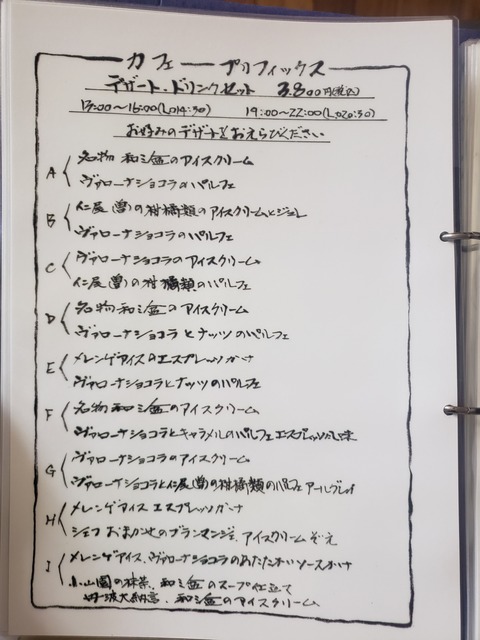 カフェ プリフィックス
デザート・ドリンクセット 3.800円(税込)
13:00〜16:00(Lo14:30) 19:00〜22:00(Lo20:30)
お好みのデザートをおえらびください
A 名物 和三盆のアイスクリーム
ヴァローナショコラのパルフェ
B 仁尾(曽)の柑橘類のアイスクリームとジュレ
ヴァローナショコラのパルフェ
C ヴァローナショコラのアイスクリーム
仁尾(曽)の柑橘類のパルフェ
D 名物 和三盆のアイスクリーム
ヴァローナショコラとナッツのパルフェ
E メレンゲアイスのエスプレッソがけ
ヴァローナショコラとナッツのパルフェ
F 名物 和三盆のアイスクリーム
ヴァローナショコラとキャラメルのパルフェ エスプレッソ風味
G ヴァローナショコラのアイスクリーム
ヴァローナショコラと仁尾(曽)の柑橘類のパルフェ アールグレイ
H メレンゲアイス エスプレッソがけ
シェフおまかせのブランマンジェ、アイスクリームぞえ
I メレンゲアイス、ヴァローナショコラのあたたかいソースがけ
小山園の抹茶、和三盆のスープ仕立て
丹波大納言、和三盆のアイスクリーム